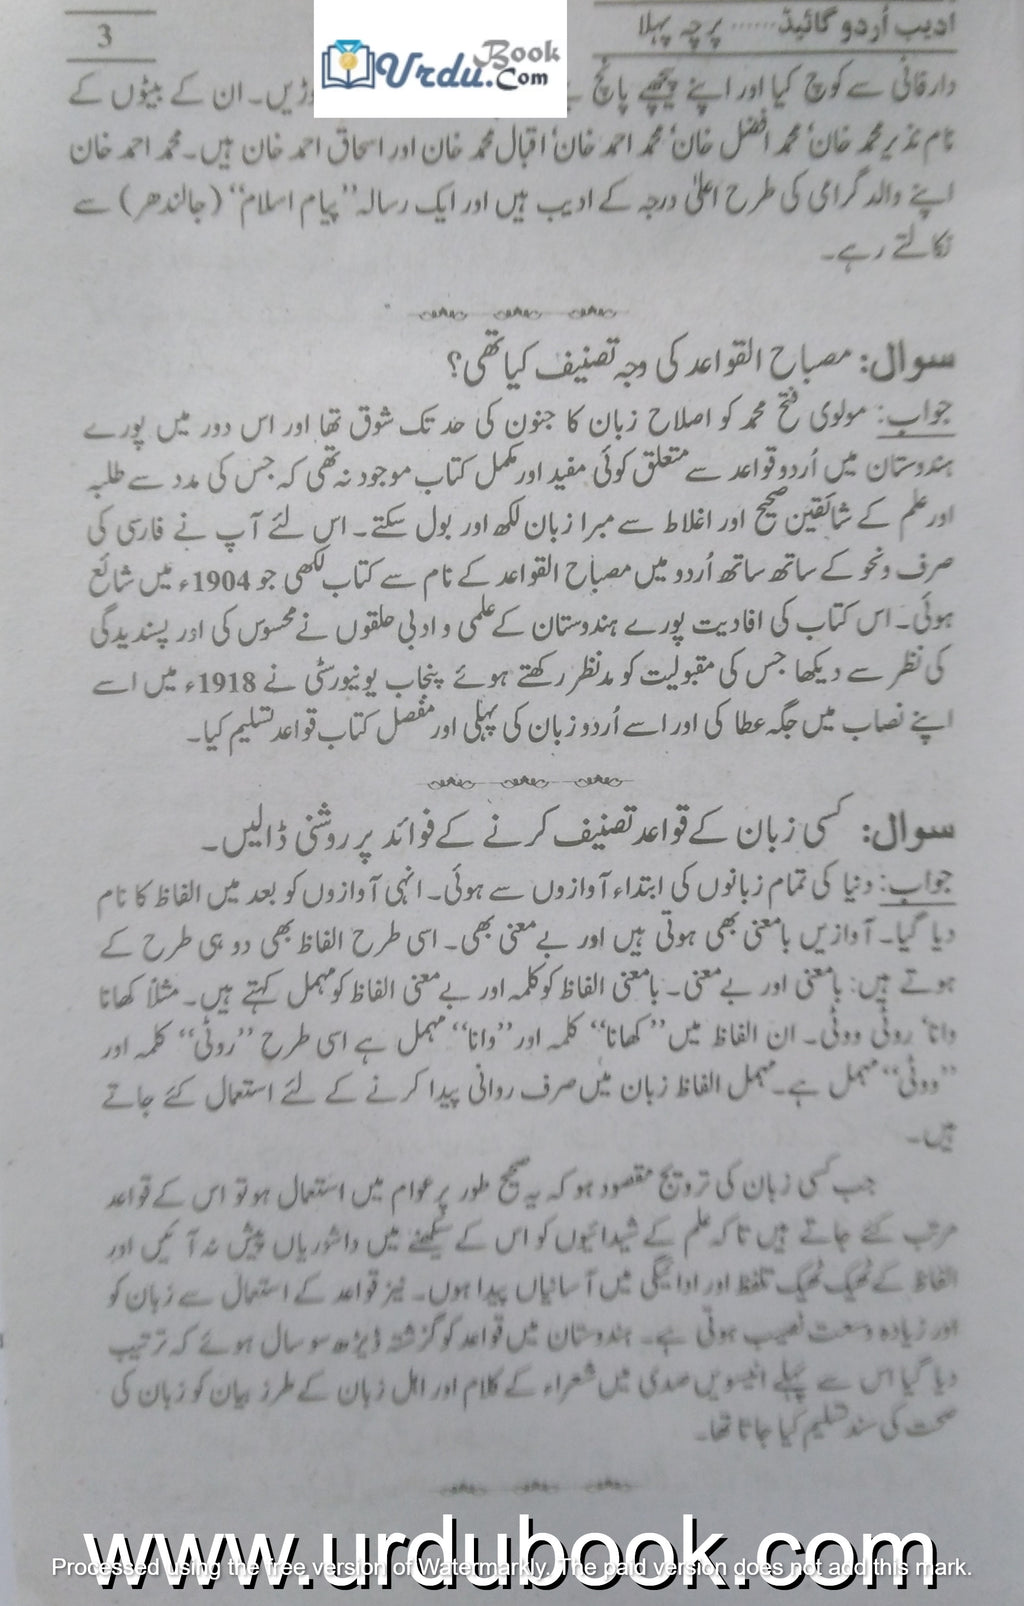 ادیب اُردو گائیڈ...... پرچہ پہلا
3
UrduBook.Com
دارفانی سے کوچ کیا اور اپنے پیچھے پانچ وڑیں۔ ان کے بیٹوں کے
نام نذیر محمد خان، محمد افضل خان، محمد احمد خان، اقبال محمد خان اور اسحاق احمد خان ہیں۔ محمد احمد خان
اپنے والد گرامی کی طرح اعلیٰ درجہ کے ادیب ہیں اور ایک رسالہ "پیام اسلام" (جالندھر) سے
نکالتے رہے۔
سوال: مصباح القواعد کی وجہ تصنیف کیا تھی؟
جواب: مولوی فتح محمد کو اصلاح زبان کا جنون کی حد تک شوق تھا اور اس دور میں پورے
ہندوستان میں اُردو قواعد سے متعلق کوئی مفید اور مکمل کتاب موجود نہ تھی کہ جس کی مدد سے طلبہ
اور علم کے شائقین صحیح اور اغلاط سے مبرا زبان لکھ اور بول سکتے۔ اس لئے آپ نے فارسی کی
صرف ونحو کے ساتھ ساتھ اُردو میں مصباح القواعد کے نام سے کتاب لکھی جو 1904ء میں شائع
ہوئی۔ اس کتاب کی افادیت پورے ہندوستان کے علمی و ادبی حلقوں نے محسوس کی اور پسندیدگی
کی نظر سے دیکھا جس کی مقبولیت کو مدنظر رکھتے ہوئے پنجاب یونیورسٹی نے 1918ء میں اسے
اپنے نصاب میں جگہ عطا کی اور اسے اُردو زبان کی پہلی اور مفصل کتاب قواعد تسلیم کیا۔
سوال: کسی زبان کے قواعد تصنیف کرنے کے فوائد پر روشنی ڈالیں۔
جواب: دنیا کی تمام زبانوں کی ابتداء آوازوں سے ہوئی۔ انہی آوازوں کو بعد میں الفاظ کا نام
دیا گیا۔ آوازیں بامعنی بھی ہوتی ہیں اور بے معنی بھی۔ اسی طرح الفاظ بھی دو ہی طرح کے
ہوتے ہیں: بامعنی اور بے معنی۔ بامعنی الفاظ کو کلمہ اور بے معنی الفاظ کو مہمل کہتے ہیں۔ مثلاً کھانا
وانا، روٹی ووٹی۔ ان الفاظ میں "کھانا" کلمہ اور "وانا" مہمل ہے اسی طرح "روٹی" کلمہ اور
"ووٹی" مہمل ہے۔ مہمل الفاظ زبان میں صرف روانی پیدا کرنے کے لئے استعمال کئے جاتے
ہیں۔
جب کسی زبان کی ترویج مقصود ہو کہ یہ صحیح طور پر عوام میں استعمال ہو تو اس کے قواعد
مرتب کئے جاتے ہیں تاکہ علم کے شیدائیوں کو اس کے سیکھنے میں دشواریاں پیش نہ آئیں اور
الفاظ کے ٹھیک ٹھیک تلفظ اور ادائیگی میں آسانیاں پیدا ہوں۔ نیز قواعد کے استعمال سے زبان کو
اور زیادہ وسعت نصیب ہوتی ہے۔ ہندوستان میں قواعد کو گزشتہ ڈیڑھ سو سال ہوئے کہ ترتیب
دیا گیا اس سے پہلے انیسویں صدی میں شعراء کے کلام اور اہل زبان کے طرز بیان کو زبان کی
صحت کی سند تسلیم کیا جاتا تھا۔
www.urdubook.com
Processed using the free version of Watermarkly. The paid version does not add this mark.